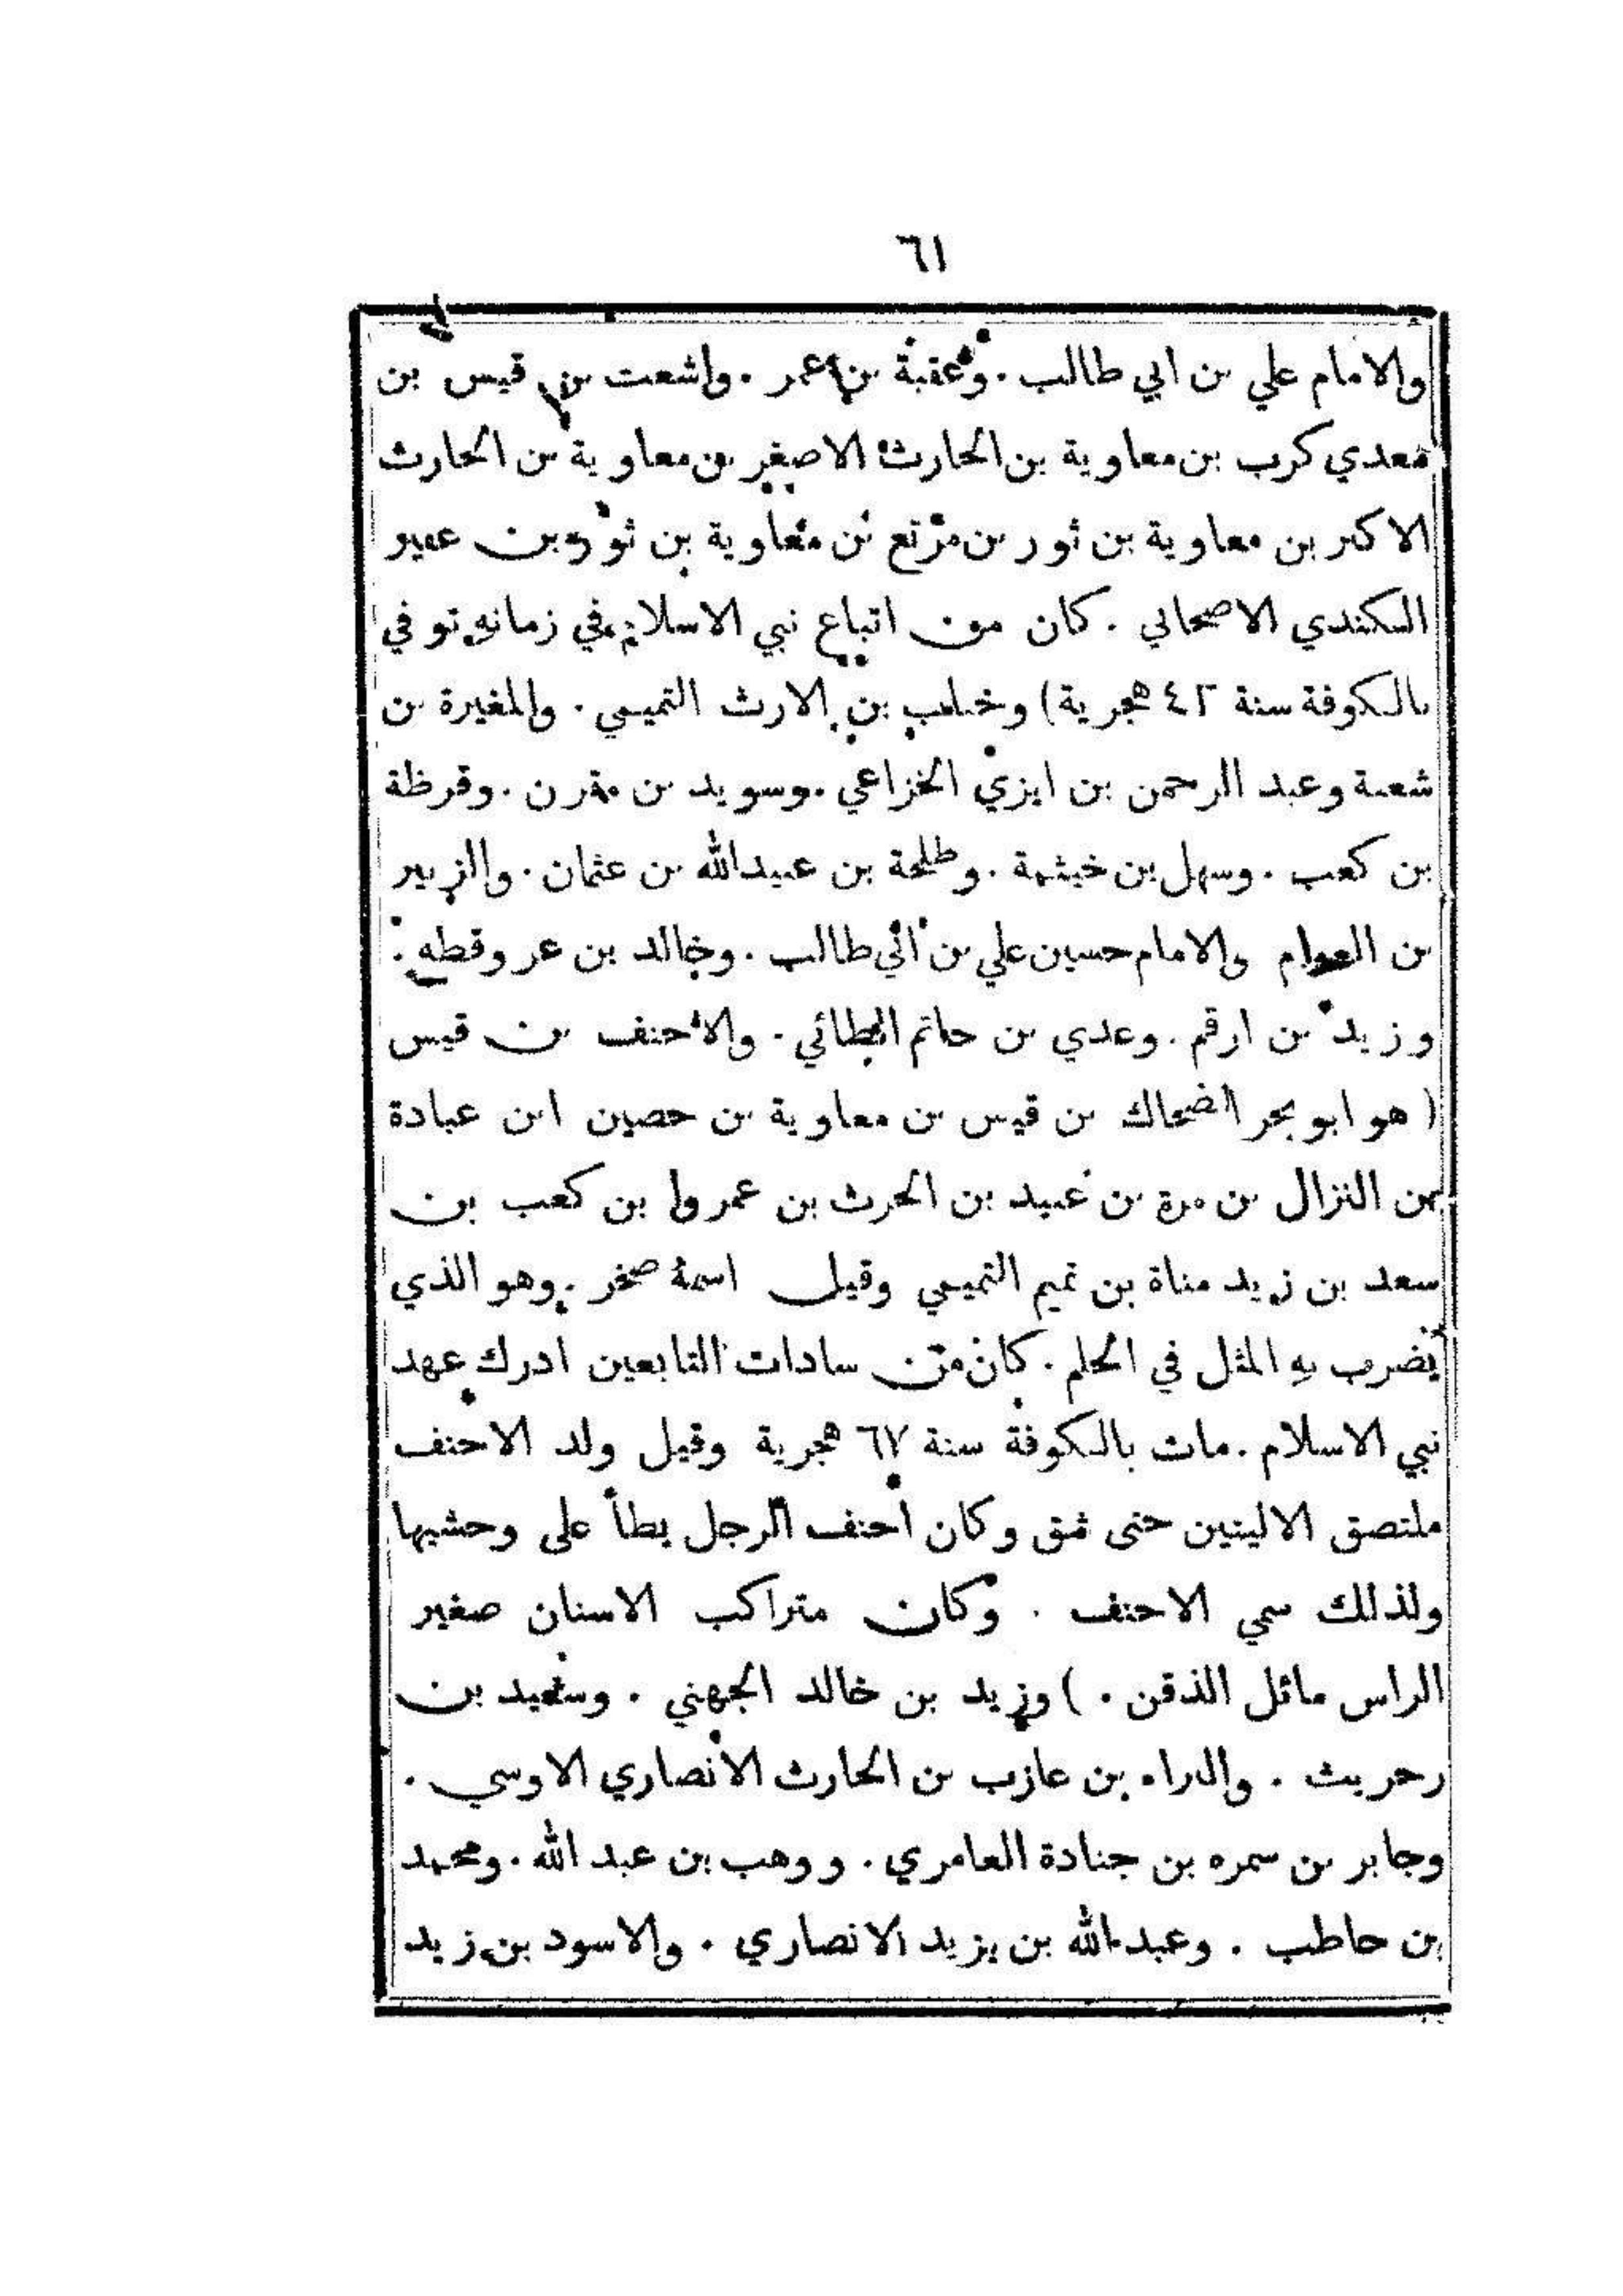 ٦١
والامام علي بن ابي طالب . وعقبة بن عمر . واشعت بن قيس بن
معدي كرب بن معاوية بن الحارث الاصغر بن معاوية بن الحارث
الاكبر بن معاوية بن ثور بن مرتع بن معاوية بن ثور بن عفير
الكندي الاصحابي . كان من اتباع نبي الاسلام في زمانه توفي
بالكوفة سنة ٤٢ هجرية) وخباب بن الارث التميمي . والمغيرة بن
شعبة وعبد الرحمن بن ايزي الخزاعي . وسويد بن مقرن . وقرظة
بن كعب . وسهل بن خيثمة . وطلحة بن عبيدالله بن عثمان . والزبير
بن العوام والامام حسين علي بن ابي طالب . وخالد بن عروقطه .
وزيد بن ارقم . وعدي بن حاتم الطائي . والاحنف بن قيس
( هو ابو بحر الضحاك بن قيس بن معاوية بن حصين ابن عبادة
بن النزال بن مرة بن عبيد بن الحرث بن عمروا بن كعب بن
سعد بن زيد مناة بن تميم التميمي وقيل اسمهُ صخر . وهو الذي
يضرب بهِ المثل في الحلم . كان من سادات التابعين ادرك عهد
نبي الاسلام . مات بالكوفة سنة ٦٧ هجرية وقيل ولد الاحنف
ملتصق الاليتين حتى شق وكان احنف الرجل يطأ على وحشيها
ولذلك سمي الاحنف . وكان متراكب الاسنان صغير
الراس مائل الذقن . ) وزيد بن خالد الجهني . وسعيد بن
حريث . والبراء بن عازب بن الحارث الانصاري الاوسي .
وجابر بن سمره بن جنادة العامري . ووهب بن عبد الله . ومحمد
بن حاطب . وعبد الله بن يزيد الانصاري . والاسود بن زيد